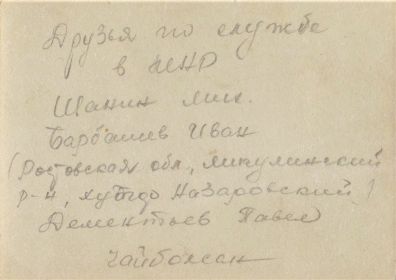 Друзья по службе
в МНР
Шанин Мих.
Барбашев Иван
(Ростовская обл., Микулинский
р-н, Назаровский)
Дементьев Павел
Чайболсан